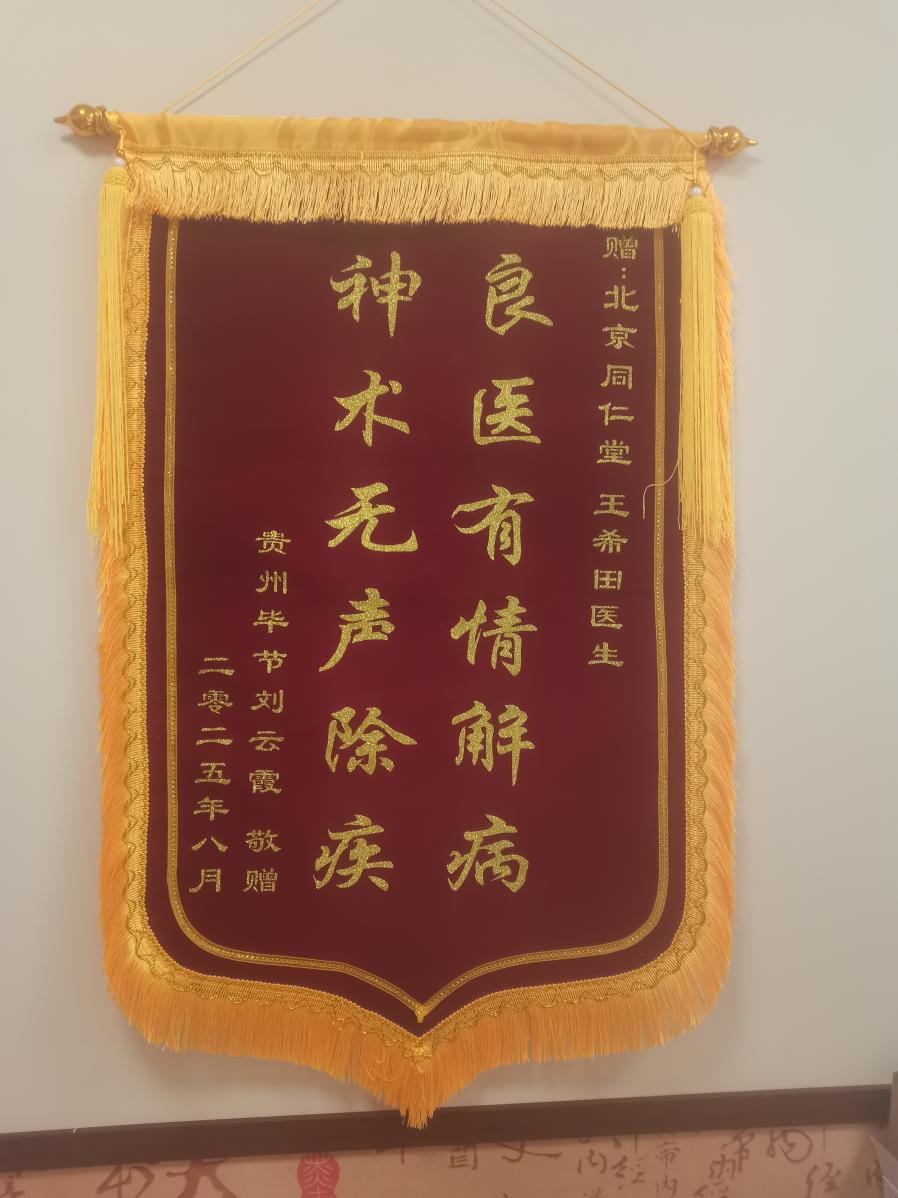 赠：北京同仁堂 王希田医生
良医有情解病
神术无声除疾
贵州毕节刘云霞 敬赠
二零二五年八月